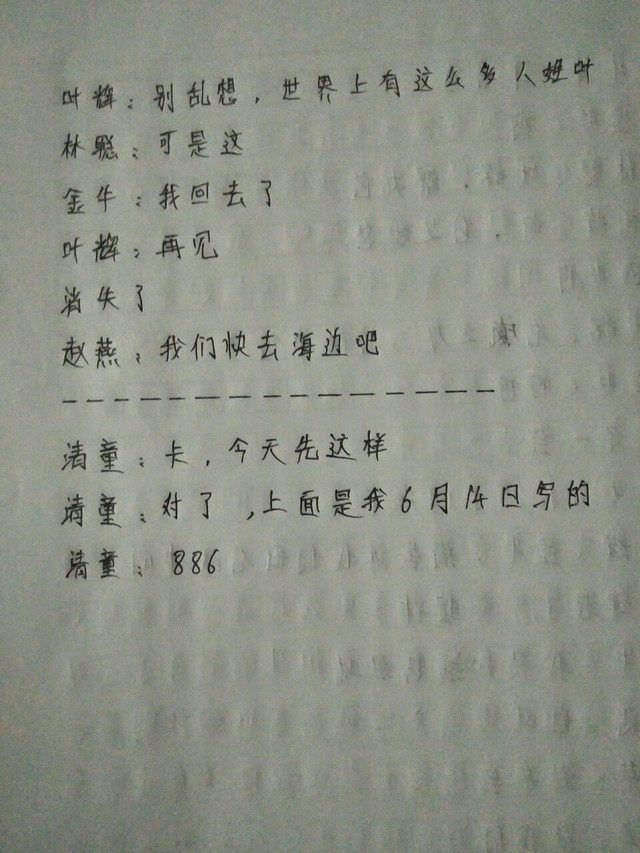 叶辉：别乱想，世界上有这么多人姓叶
林聪：可是这
金牛：我回去了
叶辉：再见
消失了
赵燕：我们快去海边吧
----------------
清童：卡，今天先这样
清童：对了，上面是我6月14日写的
清童：886